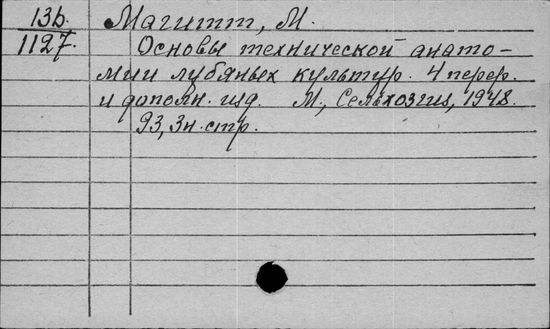 13б. Магитт, М.
1127. Основы технической анато-
мии лубяных культур. 4 перер.
и дополн. изд. М., Сельхозгиз, 1948.
93, 3н. стр.